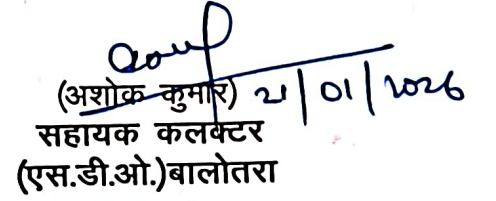 (अशोक कुमार) 21/01/2026
सहायक कलक्टर
(एस.डी.ओ.)बालोतरा